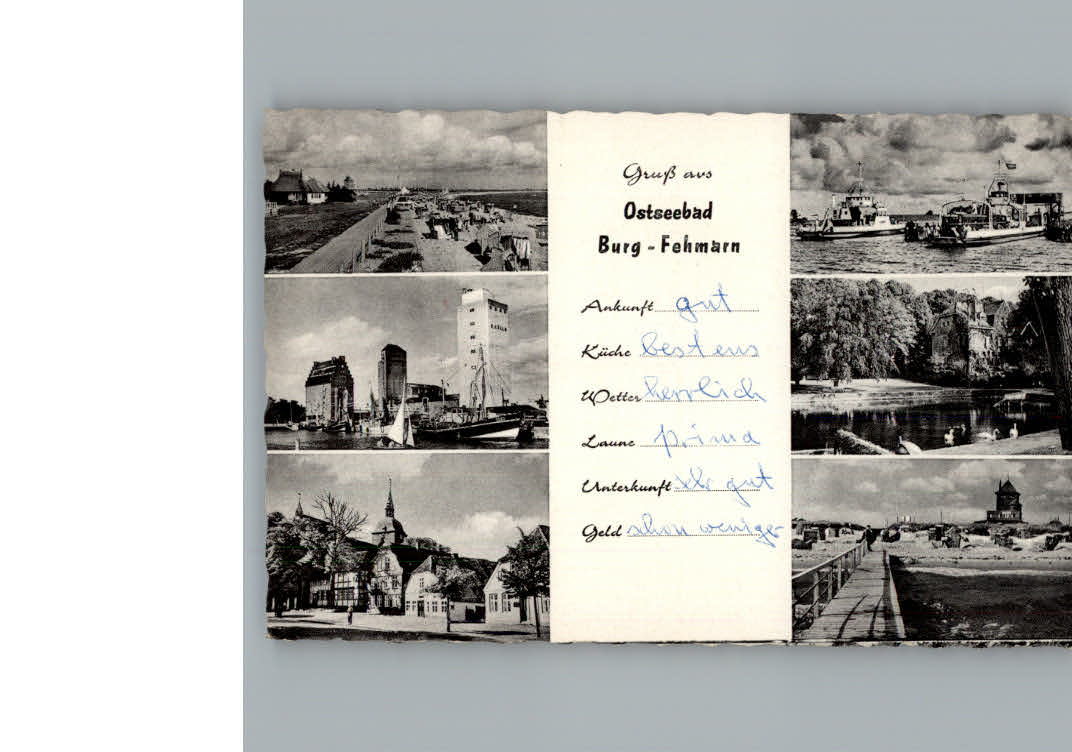 Gruß aus
Ostseebad
Burg - Fehmarn
Ankunft gut
Küche bestens
Wetter herrlich
Laune prima
Unterkunft sehr gut
Geld schon weniger